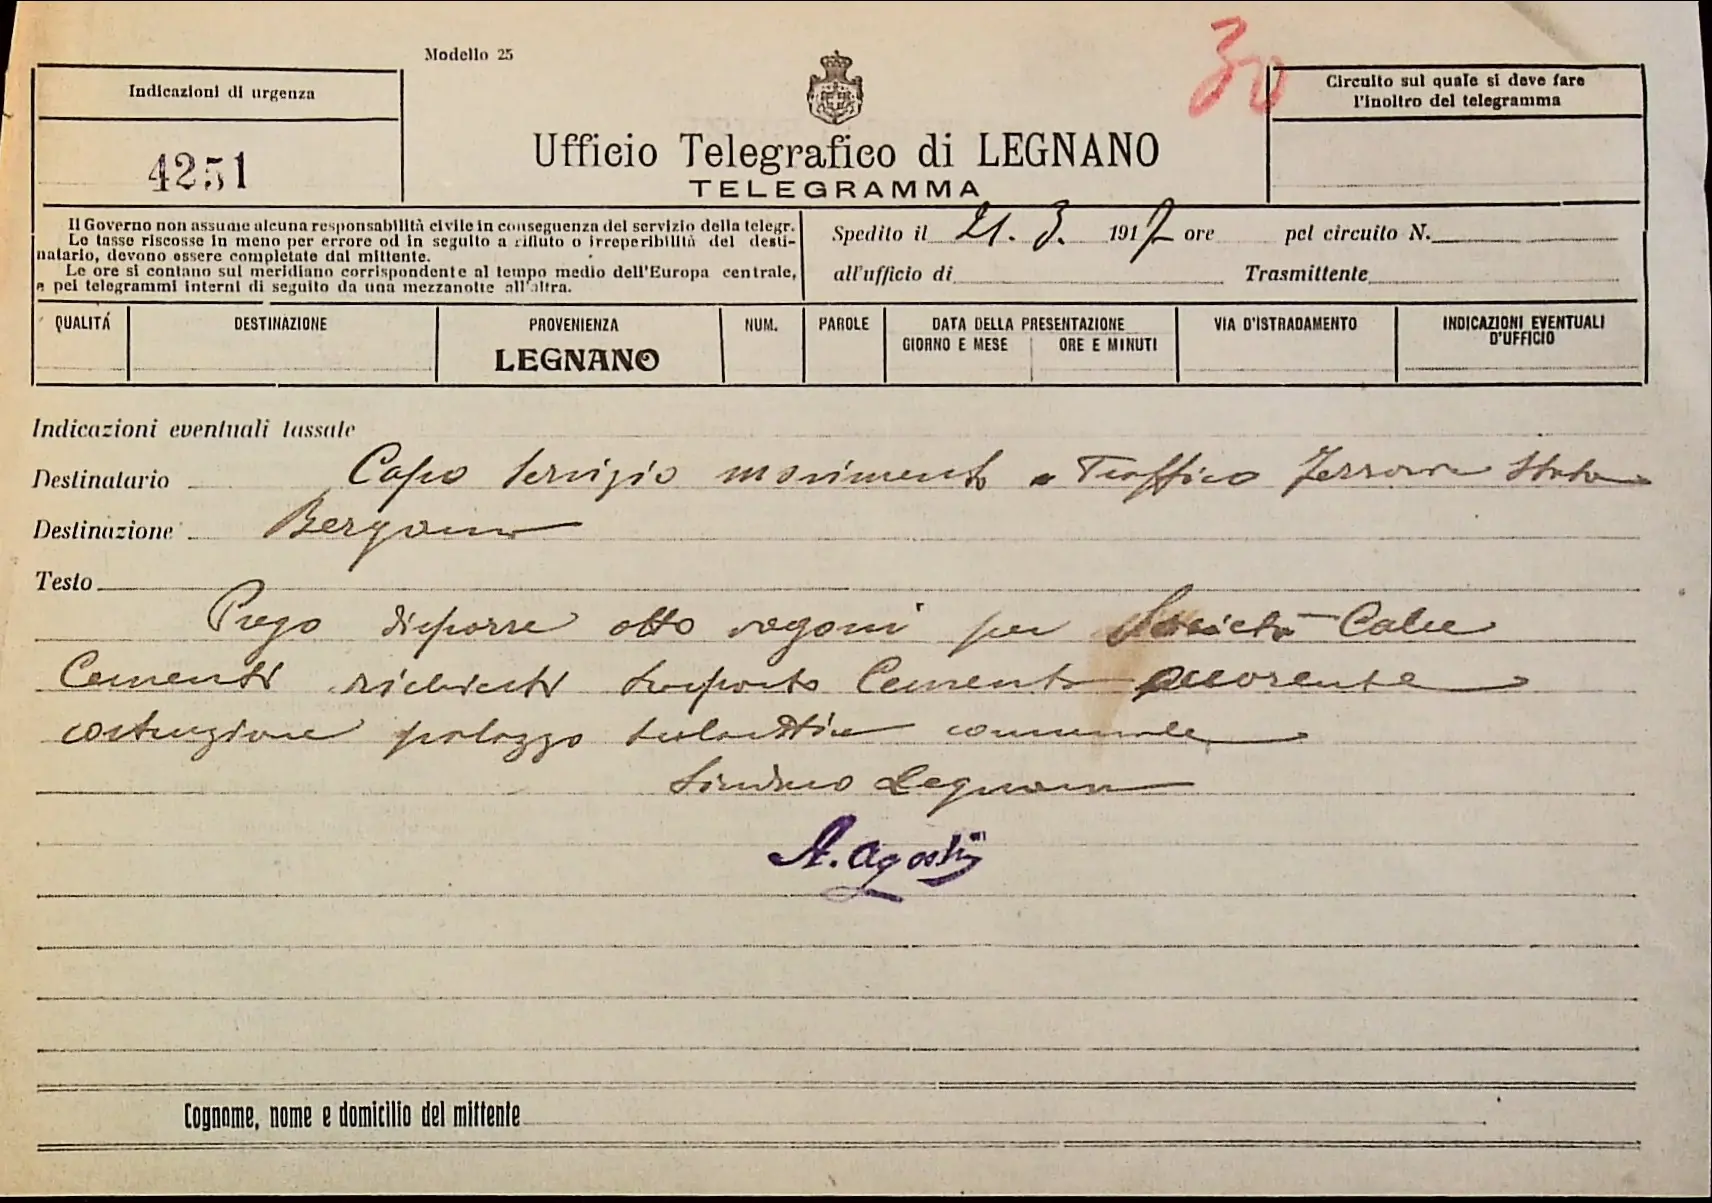 Modello 25
30
Indicazioni di urgenza
4251
Ufficio Telegrafico di LEGNANO
TELEGRAMMA
Circuito sul quale si deve fare
l'inoltro del telegramma
Il Governo non assume alcuna responsabilità civile in conseguenza del servizio della telegr.
Le tasse riscosse in meno per errore od in seguito a rifiuto o irreperibilità del desti-
natario, devono essere completate dal mittente.
Le ore si contano sul meridiano corrispondente al tempo medio dell'Europa centrale,
e pei telegrammi interni di seguito da una mezzanotte all'altra.
Spedito il 21. 3. 1917 ore pel circuito N.
all'ufficio di Trasmittente
QUALITÁ DESTINAZIONE PROVENIENZA NUM. PAROLE DATA DELLA PRESENTAZIONE VIA D'ISTRADAMENTO INDICAZIONI EVENTUALI
GIORNO E MESE ORE E MINUTI D'UFFICIO
LEGNANO
Indicazioni eventuali tassate
Destinatario Capo Servizio movimento e Traffico Ferrovie Stato
Destinazione Bergamo
Testo
Prego disporre otto vagoni per Società Calce
Cementi richiesti trasporto Cemento occorente
costruzione palazzo scolastico comunale
Sindaco Legnano
A. Agosti
Cognome, nome e domicilio del mittente